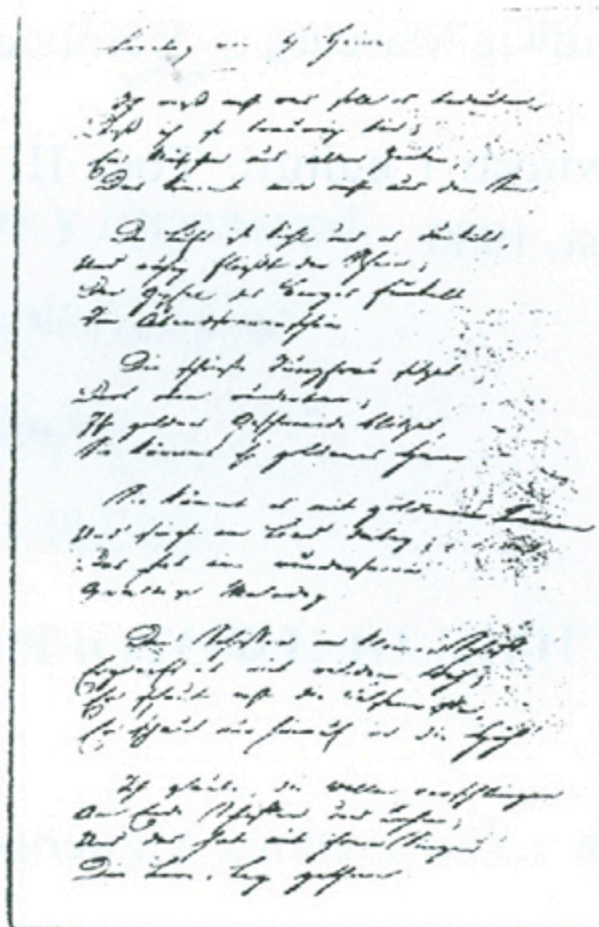 Loreley von H. Heine
Ich weiß nicht was soll es bedeuten,
Daß ich so traurig bin;
Ein Mährchen aus alten Zeiten
Das kommt mir nicht aus dem Sinn
Die Luft ist kühl und es dunkelt,
Und ruhig fließt der Rhein;
Der Gipfel des Berges funkelt
Im Abendsonnenschein
Die schönste Jungfrau sitzet
Dort oben wunderbar,
Ihr goldnes Geschmeide blitzet,
Sie kämmt ihr goldenes Haar
Sie kämmt es mit goldenem Kamme
Und singt ein Lied dabey;
Das hat eine wundersame
Gewaltige Melodey
Den Schiffer im kleinen Schiffe
Ergreift es mit wildem Weh;
Er schaut nicht die
Er schaut nur hinauf in die Höh'
Ich glaube, die Wellen verschlingen
Am Ende Schiffer und Kahn;
Und das hat mit ihrem Singen
Die Lore-Ley gethan